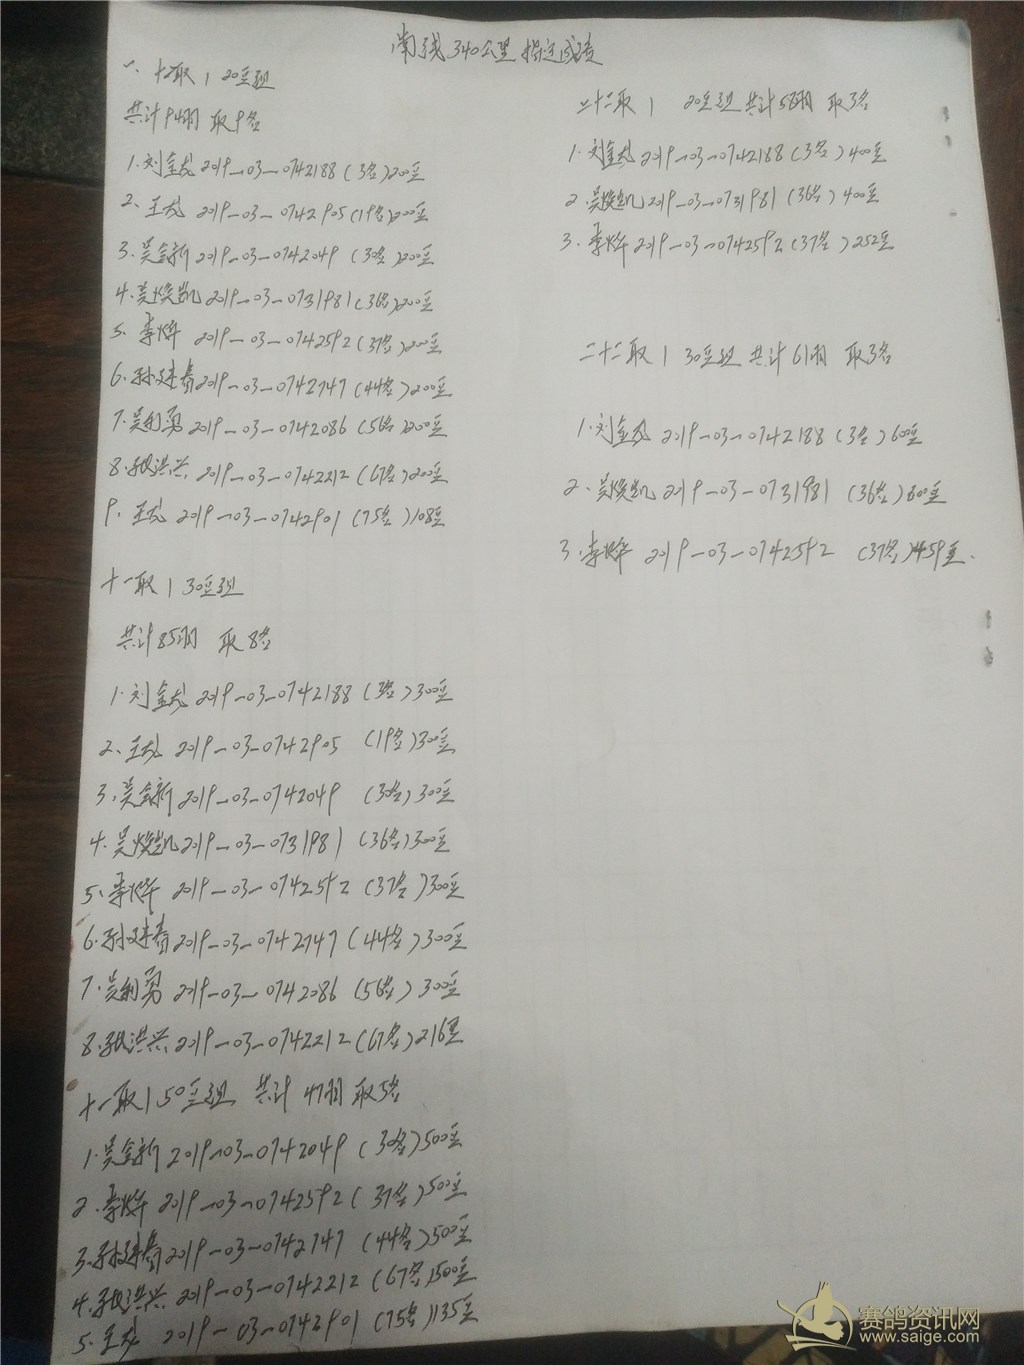 南线340公里指定成绩
一、十取1 20豆组
共计94羽 取9名
1.刘金龙2019-03-0742188(3名)200豆
2、王龙 2019-03-0742905(19名)200豆
3.吴金新2019-03-0742049(30名)200豆
4.吴焕凯2019-03-0731981(36名)200豆
5.李烨 2019-03-0742592(37名)200豆
6.孙建春2019-03-0742747(44名)200豆
7.吴利勇2019-03-0742086(56名)200豆
8.张洪兴2019-03-0742212(67名)200豆
9.王龙 2019-03-0742901(75名)108豆
十一取1 30豆组
共计85羽 取8名
1.刘金龙2019-03-0742188(3名)300豆
2、王龙 2019-03-0742905 (19名)300豆
3.吴金新2019-03-0742049 (30名)300豆
4.吴焕凯2019-03-0731981 (36名)300豆
5、李烨 2019-03-0742592 (37名)300豆
6.孙建春2019-03-0742747 (44名)300豆
7.吴利勇 2019-03-0742086 (56名)300豆
8.张洪兴2019-03-0742212(67名)216豆
十一取1 50豆组 共计47羽 取5名
1.吴金新2019-03-0742049 (30名)500豆
2.李烨 2019-03-0742592(37名)500豆
3.孙建春2019-03-0742747 (44名)500豆
4.张洪兴 2019-03-0742212(67名)500豆
5.王龙 2019-03-0742901(75名)135豆
二十二取1 20豆组共计58羽 取3名
1.刘金龙2019-03-0742188(3名)400豆
2.吴焕凯2019-03-0731981(36名)400豆
3.李烨2019-03-0742592(37名)252豆
二十二取1 30豆组共计61羽 取3名
1.刘金龙 2019-03-0742188(3名)600豆
2.吴焕凯2019-03-0731981 (36名)600豆
3.李烨 2019-03-0742592 (37名)459豆.
赛鸽资讯网
www.saige.com